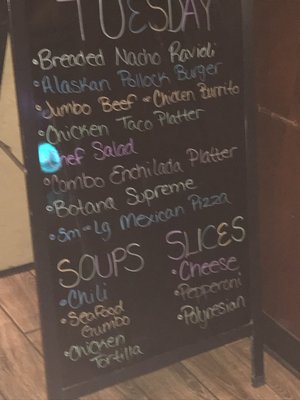 TUESDAY
• Breaded Nacho Ravioli
• Alaskan Pollock Burger
• Jumbo Beef or Chicken Burrito
• Chicken Taco Platter
Chef Salad
• Combo Enchilada Platter
• Botana Supreme
• Sm - Lg Mexican Pizza
SOUPS
• Chili
• Seafood
Gumbo
• Chicken
Tortilla
SLICES
• Cheese
• Pepperoni
• Polynesian